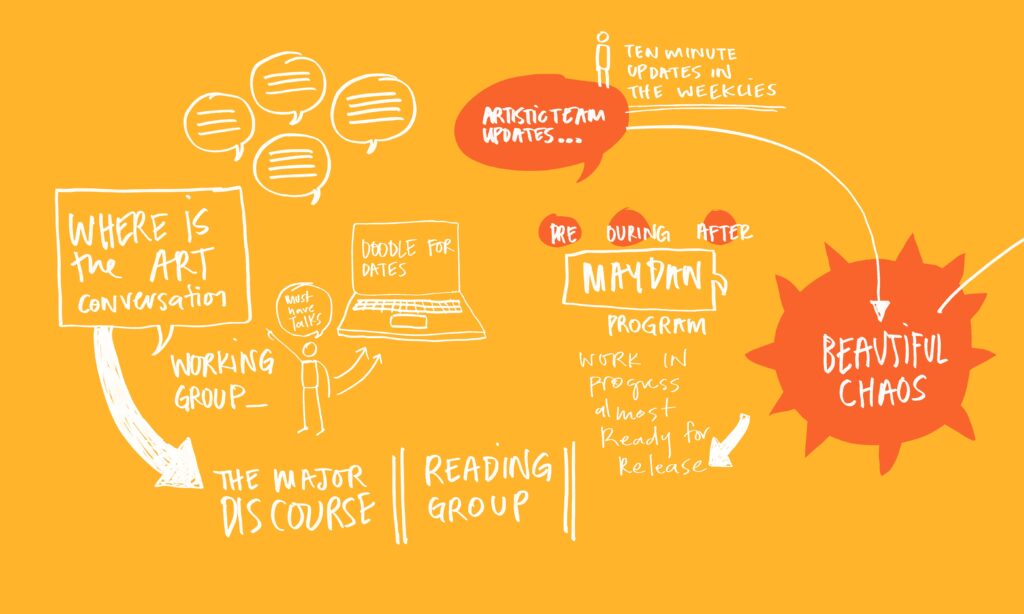 WHERE IS
the ART
conversation
WORKING
GROUP_
Must
have
Talks
DOODLE FOR
DATES
THE MAJOR
DISCOURSE
READING
GROUP
ARTISTIC TEAM
UPDATES...
TEN MINUTE
UPDATES IN
THE WEEKLIES
PRE DURING AFTER
MAYDAN
PROGRAM
WORK IN
progress
almost
Ready for
Release
BEAUTIFUL
CHAOS